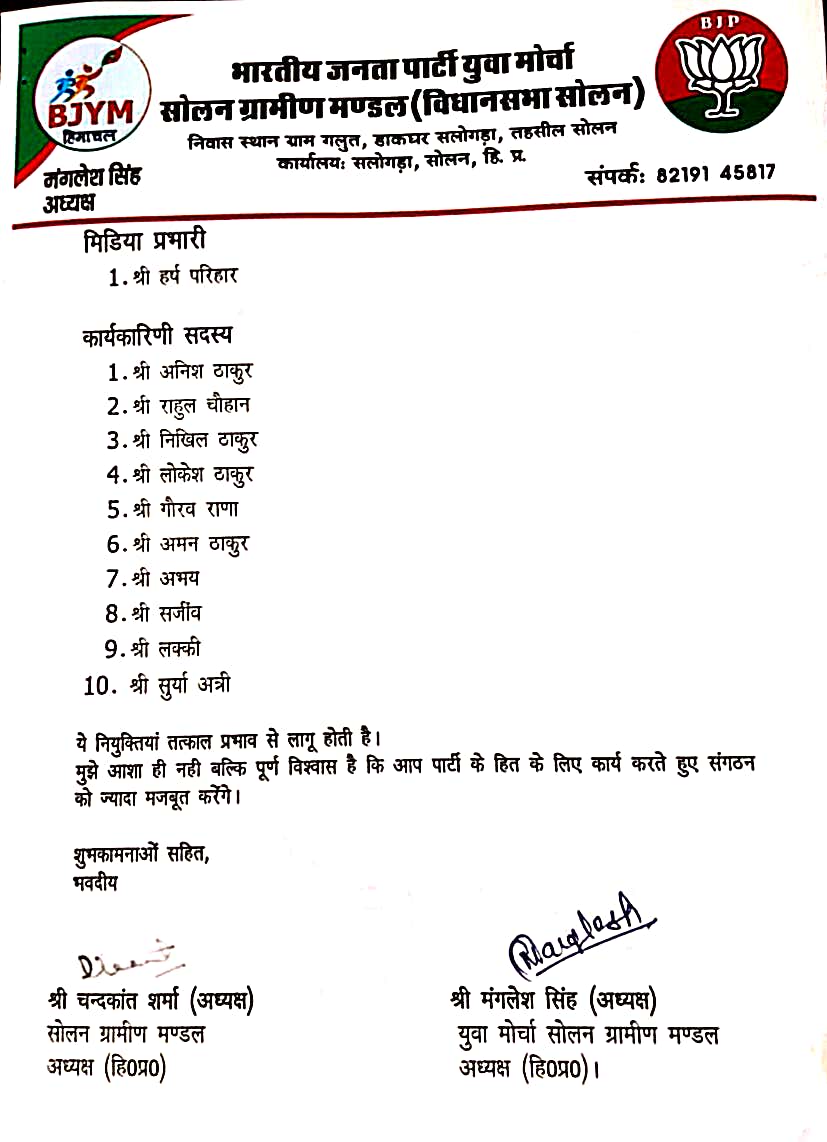 BJYM
हिमाचल
BJP
भारतीय जनता पार्टी युवा मोर्चा
सोलन ग्रामीण मण्डल (विधानसभा सोलन)
निवास स्थान ग्राम गलुत, डाकघर सलोगड़ा, तहसील सोलन
कार्यालय: सलोगड़ा, सोलन, हि. प्र.
मंगलेश सिंह
अध्यक्ष
संपर्क: 82191 45817
मिडिया प्रभारी
1. श्री हर्ष परिहार
कार्यकारिणी सदस्य
1. श्री अनिश ठाकुर
2. श्री राहुल चौहान
3. श्री निखिल ठाकुर
4. श्री लोकेश ठाकुर
5. श्री गौरव राणा
6. श्री अमन ठाकुर
7. श्री अभय
8. श्री सजींव
9. श्री लक्की
10. श्री सुर्या अत्री
ये नियुक्तियां तत्काल प्रभाव से लागू होती है।
मुझे आशा ही नही बल्कि पूर्ण विश्वास है कि आप पार्टी के हित के लिए कार्य करते हुए संगठन
को ज्यादा मजबूत करेंगे।
शुभकामनाओं सहित,
भवदीय
श्री चन्दकांत शर्मा (अध्यक्ष)
सोलन ग्रामीण मण्डल
अध्यक्ष (हि0प्र0)
Manglesh
श्री मंगलेश सिंह (अध्यक्ष)
युवा मोर्चा सोलन ग्रामीण मण्डल
अध्यक्ष (हि0प्र0)।